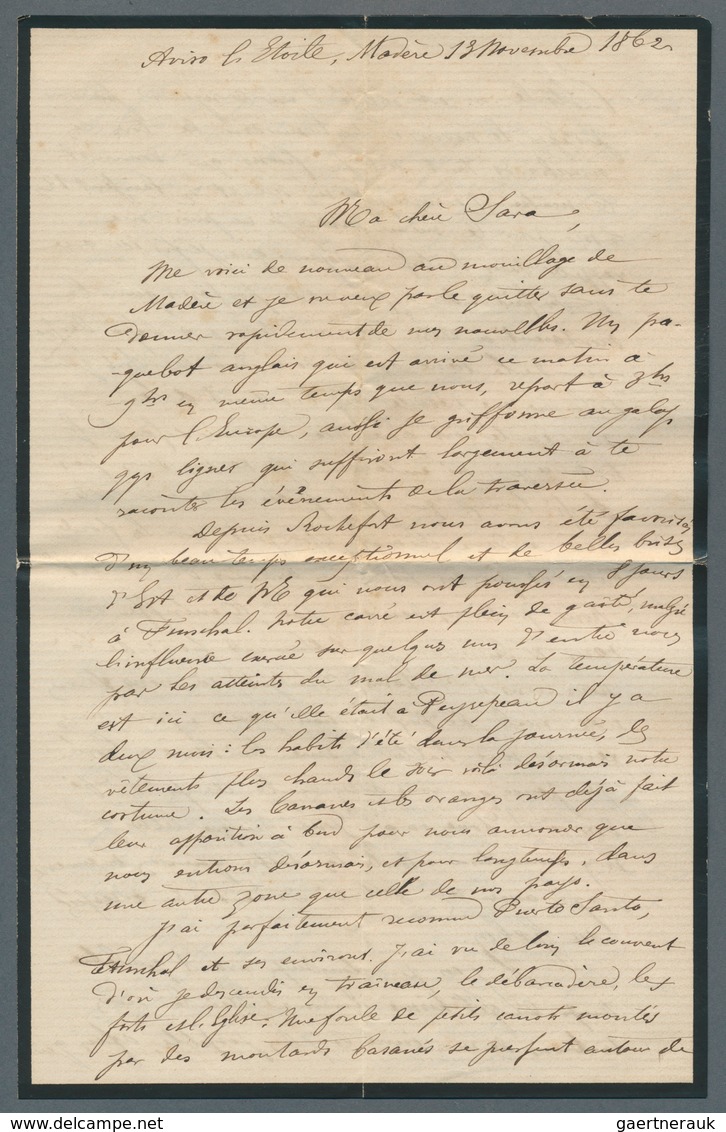 Aviso l'Etoile, Madère 13 Novembre 1862
Ma chère Sara,
Me voici de nouveau au mouillage de
Madère et je ne veux pas le quitter sans te
donner rapidement de mes nouvelles. Un pa-
-quebot anglais qui est arrivé ce matin à
9hrs en même temps que nous, repart à 3hrs
pour l'Europe, aussi je griffonne au galop
qqs lignes qui suffiront largement à te
raconter les évènements de la traversée.
Depuis Rochefort nous avons été favorisés
d'un beau temps exceptionnel et de belles brises
d'Est et de NE qui nous ont poussés en 8 jours
à Funchal. Notre carré est plein de gaité, malgré
l'influence exercée sur quelques uns d'entre nous
par les atteintes du mal de mer. La température
est ici ce qu'elle était à Peyrepeau il y a
deux mois : les habits d'été dans la journée, des
vêtements plus chauds le soir voilà désormais notre
costume. Les bananes et les oranges ont déjà fait
leur apparition à bord pour nous annoncer que
nous entrions désormais, et pour longtemps, dans
une autre zone que celle de nos pays.
J'ai parfaitement reconnu Puerto Santo,
Funchal et ses environs. J'ai vu de loin le couvent
d'où je descendis en traineau, le débarcadère, les
forts et l'Eglise. Une foule de petits canots montés
par des moutards basanés se pressent autour de
gaertnerauk